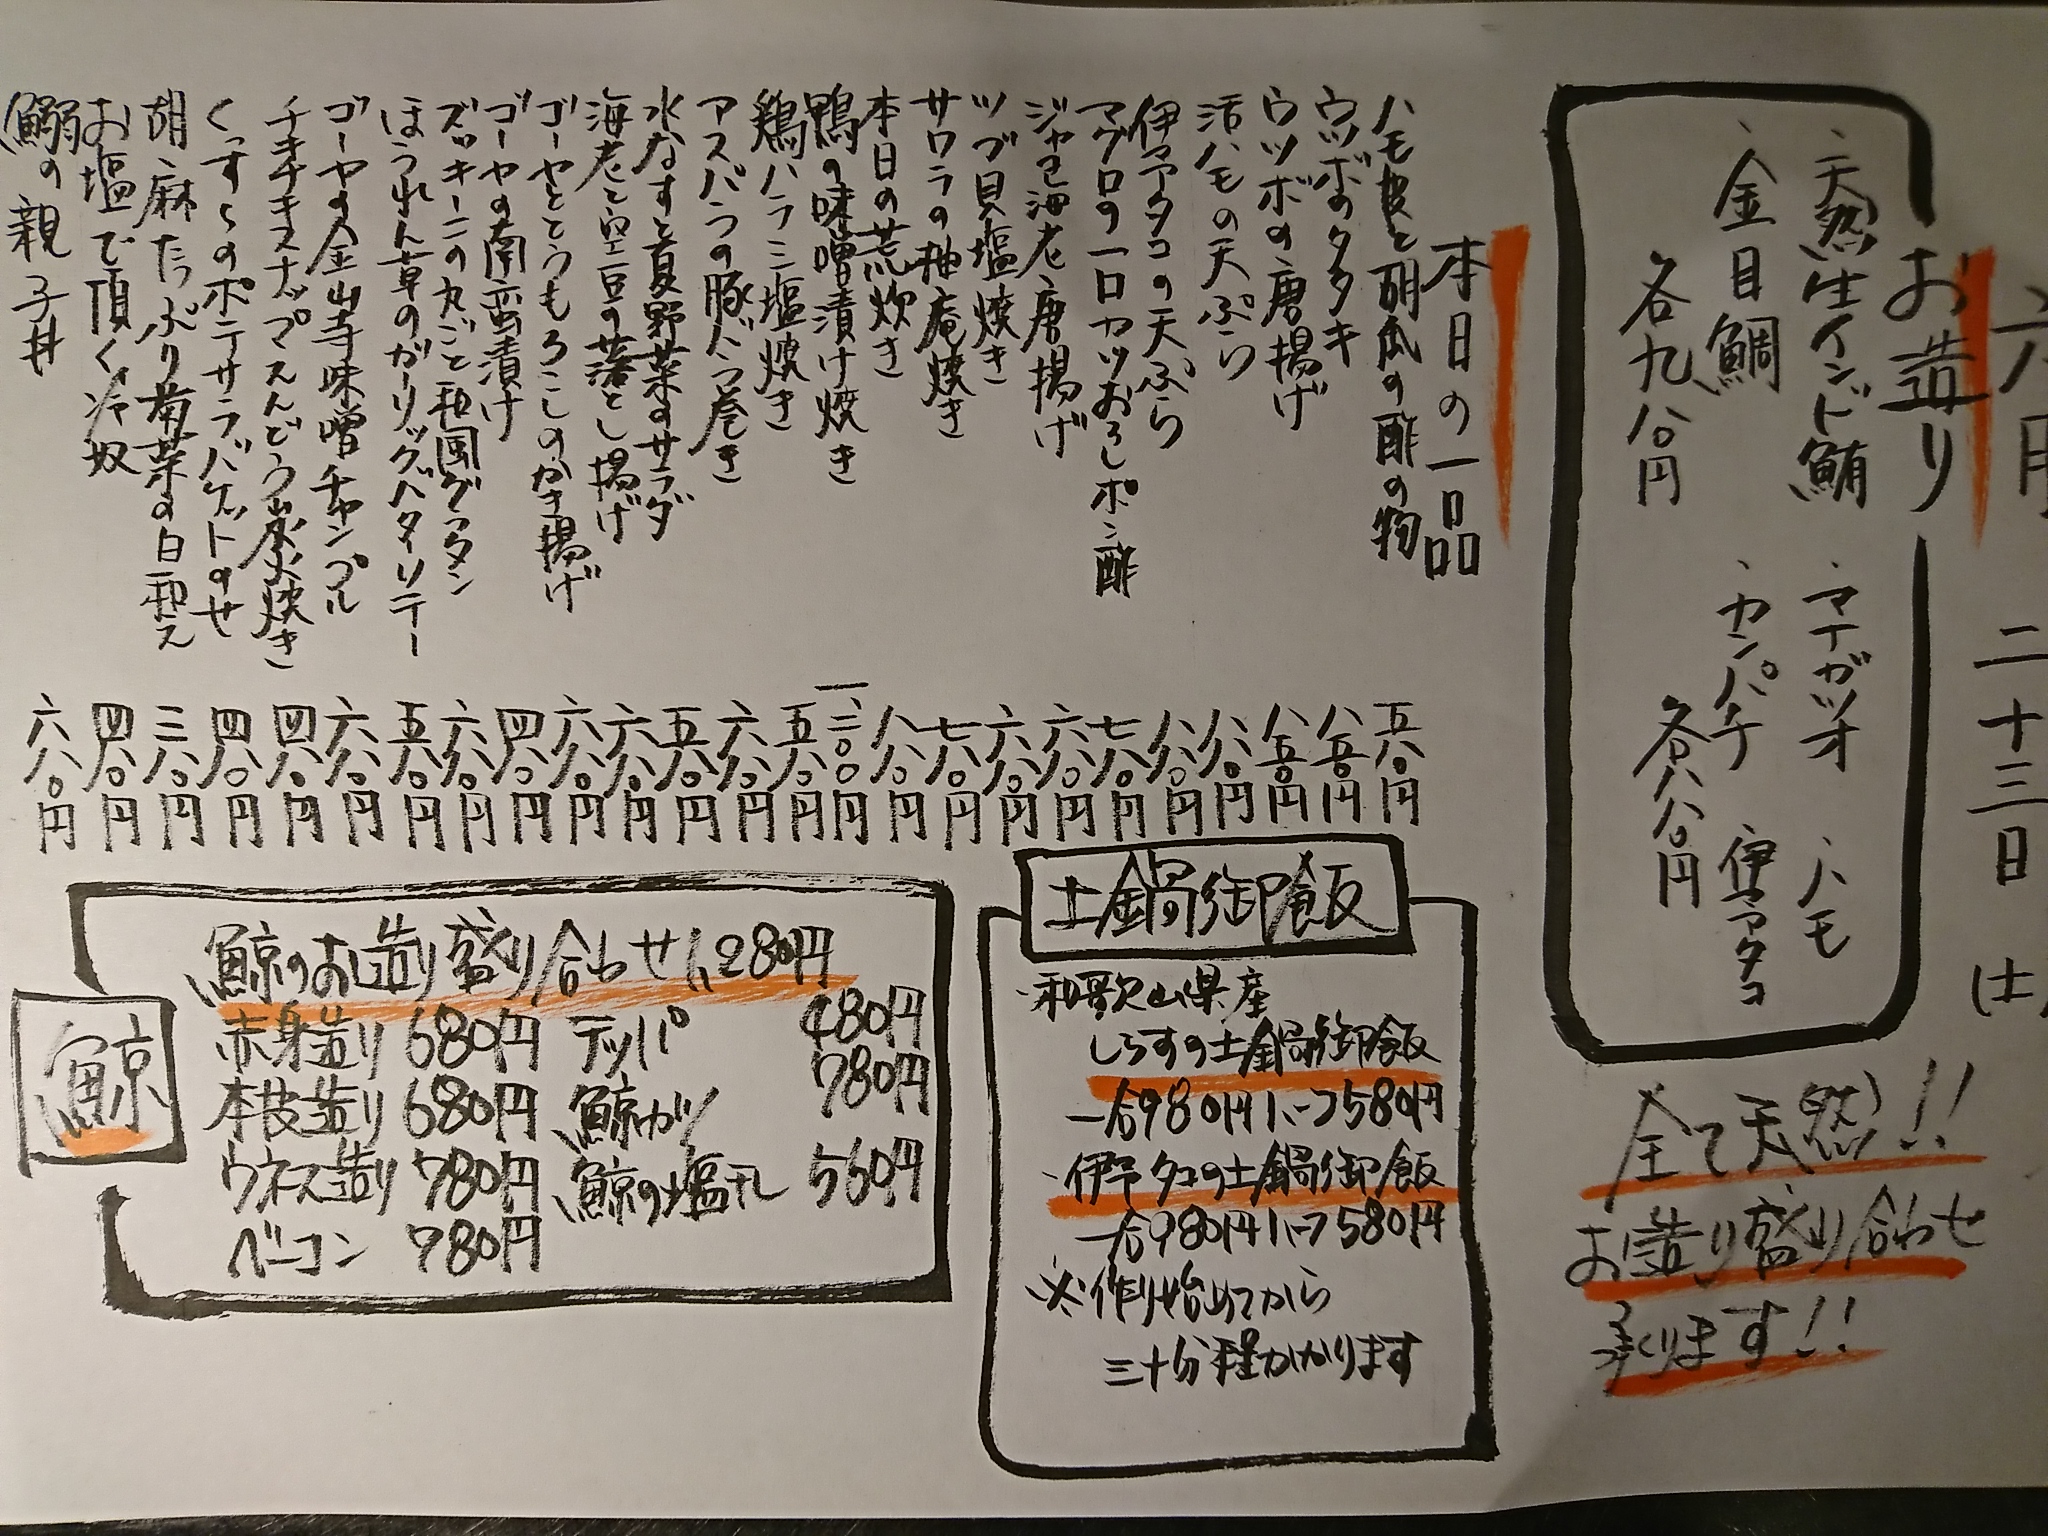 六月 二十三日 (土)
お造り
、天然生インド鮪 、マナガツオ 、ハモ
、金目鯛 、カンパチ 、伊予タコ
各九八〇円 各八八〇円
全て天然!!
お造り盛り合わせ
承ります!!
本日の一品
ハモ皮と胡瓜の酢の物 五八〇円
ウツボのタタキ 八五〇円
ウツボの唐揚げ 八五〇円
活ハモの天ぷら 八八〇円
伊予タコの天ぷら 八八〇円
マグロの一口カツおろしポン酢 七八〇円
ジャコ海老唐揚げ 六八〇円
ツブ貝塩焼き 六八〇円
サワラの柚庵焼き 七八〇円
本日の荒炊き 八八〇円
鴨の味噌漬け焼き 一、二〇〇円
鶏ハラミ塩焼き 五八〇円
アスパラの豚バラ巻き 六八〇円
水なすと夏野菜のサラダ 五八〇円
海老と空豆の落とし揚げ 六八〇円
ゴーヤととうもろこしのかき揚げ 六八〇円
ゴーヤの南蛮漬け 四八〇円
ズッキーニの丸ごと和風グラタン 六八〇円
ほうれん草のガーリックバターソテー 五八〇円
ゴーヤの金山寺味噌チャンプル 六八〇円
チキチキスナップえんどう炭火焼き 四八〇円
くっすらのポテサラバケットのせ 四八〇円
胡麻たっぷり菊菜の白和え 三八〇円
お塩で頂く冷奴 四八〇円
鰯の親子丼 六八〇円
土鍋御飯
・和歌山県産
しらすの土鍋御飯
一合980円 ハーフ580円
・伊予タコの土鍋御飯
一合980円 ハーフ580円
※作り始めてから
三十分程かかります
鯨
鯨のお造り盛り合わせ 1,280円
赤身造り 680円 テッパ 480円
本皮造り 680円 鯨カツ 780円
ウネス造り 780円 鯨の塩干し 560円
ベーコン 780円